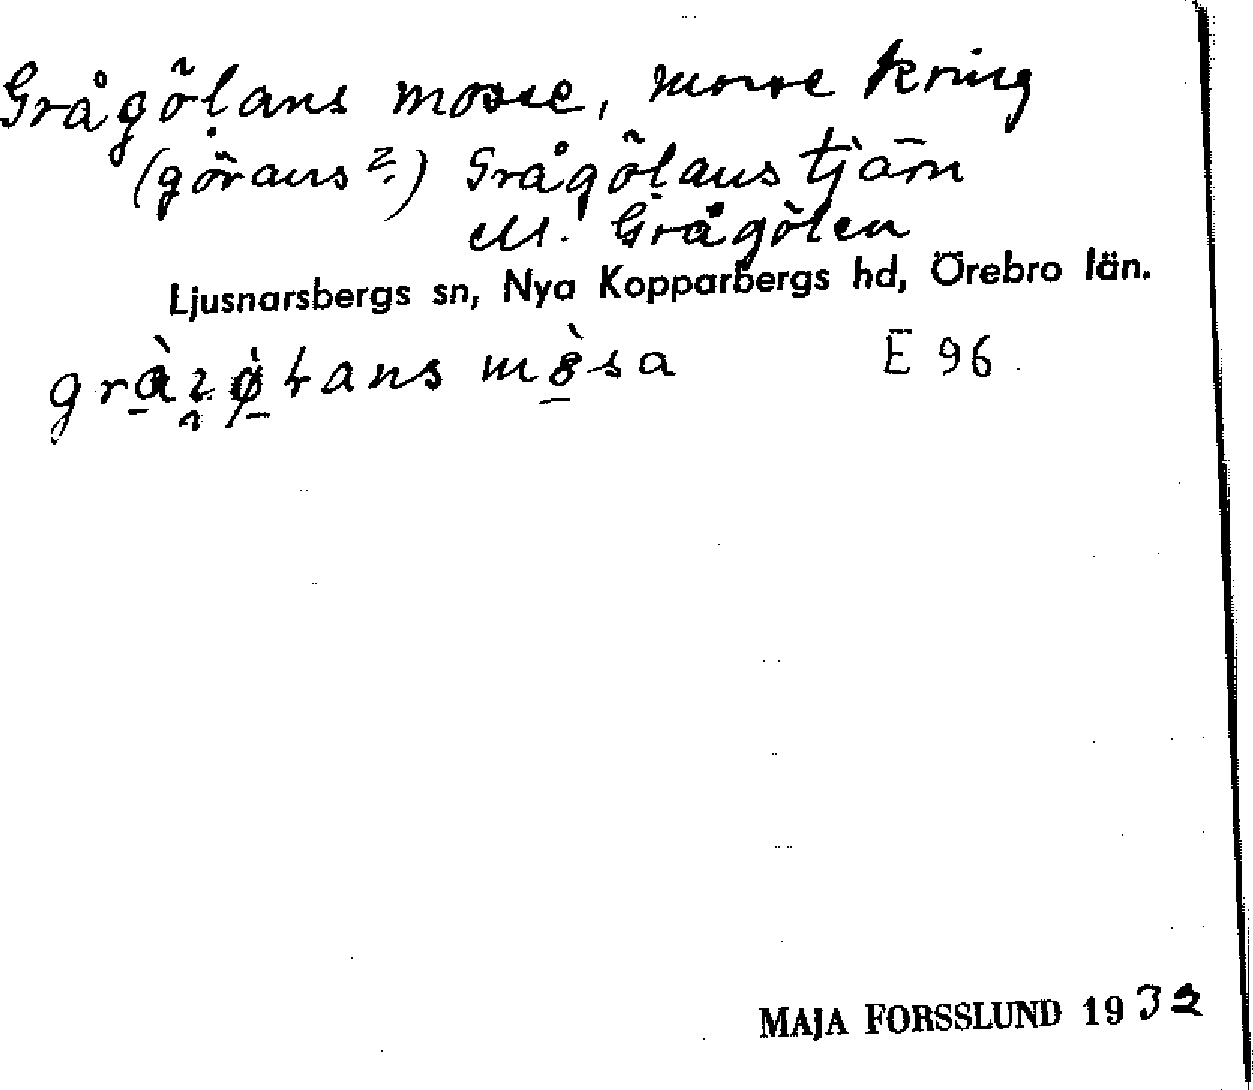 Grågölans mosse, mosse kring
(görans?) Grågölans tjärn
ell. Grågölen
Ljusnarsbergs sn, Nya Kopparbergs hd, Örebro län.
E 96
MAJA FORSSLUND 1932